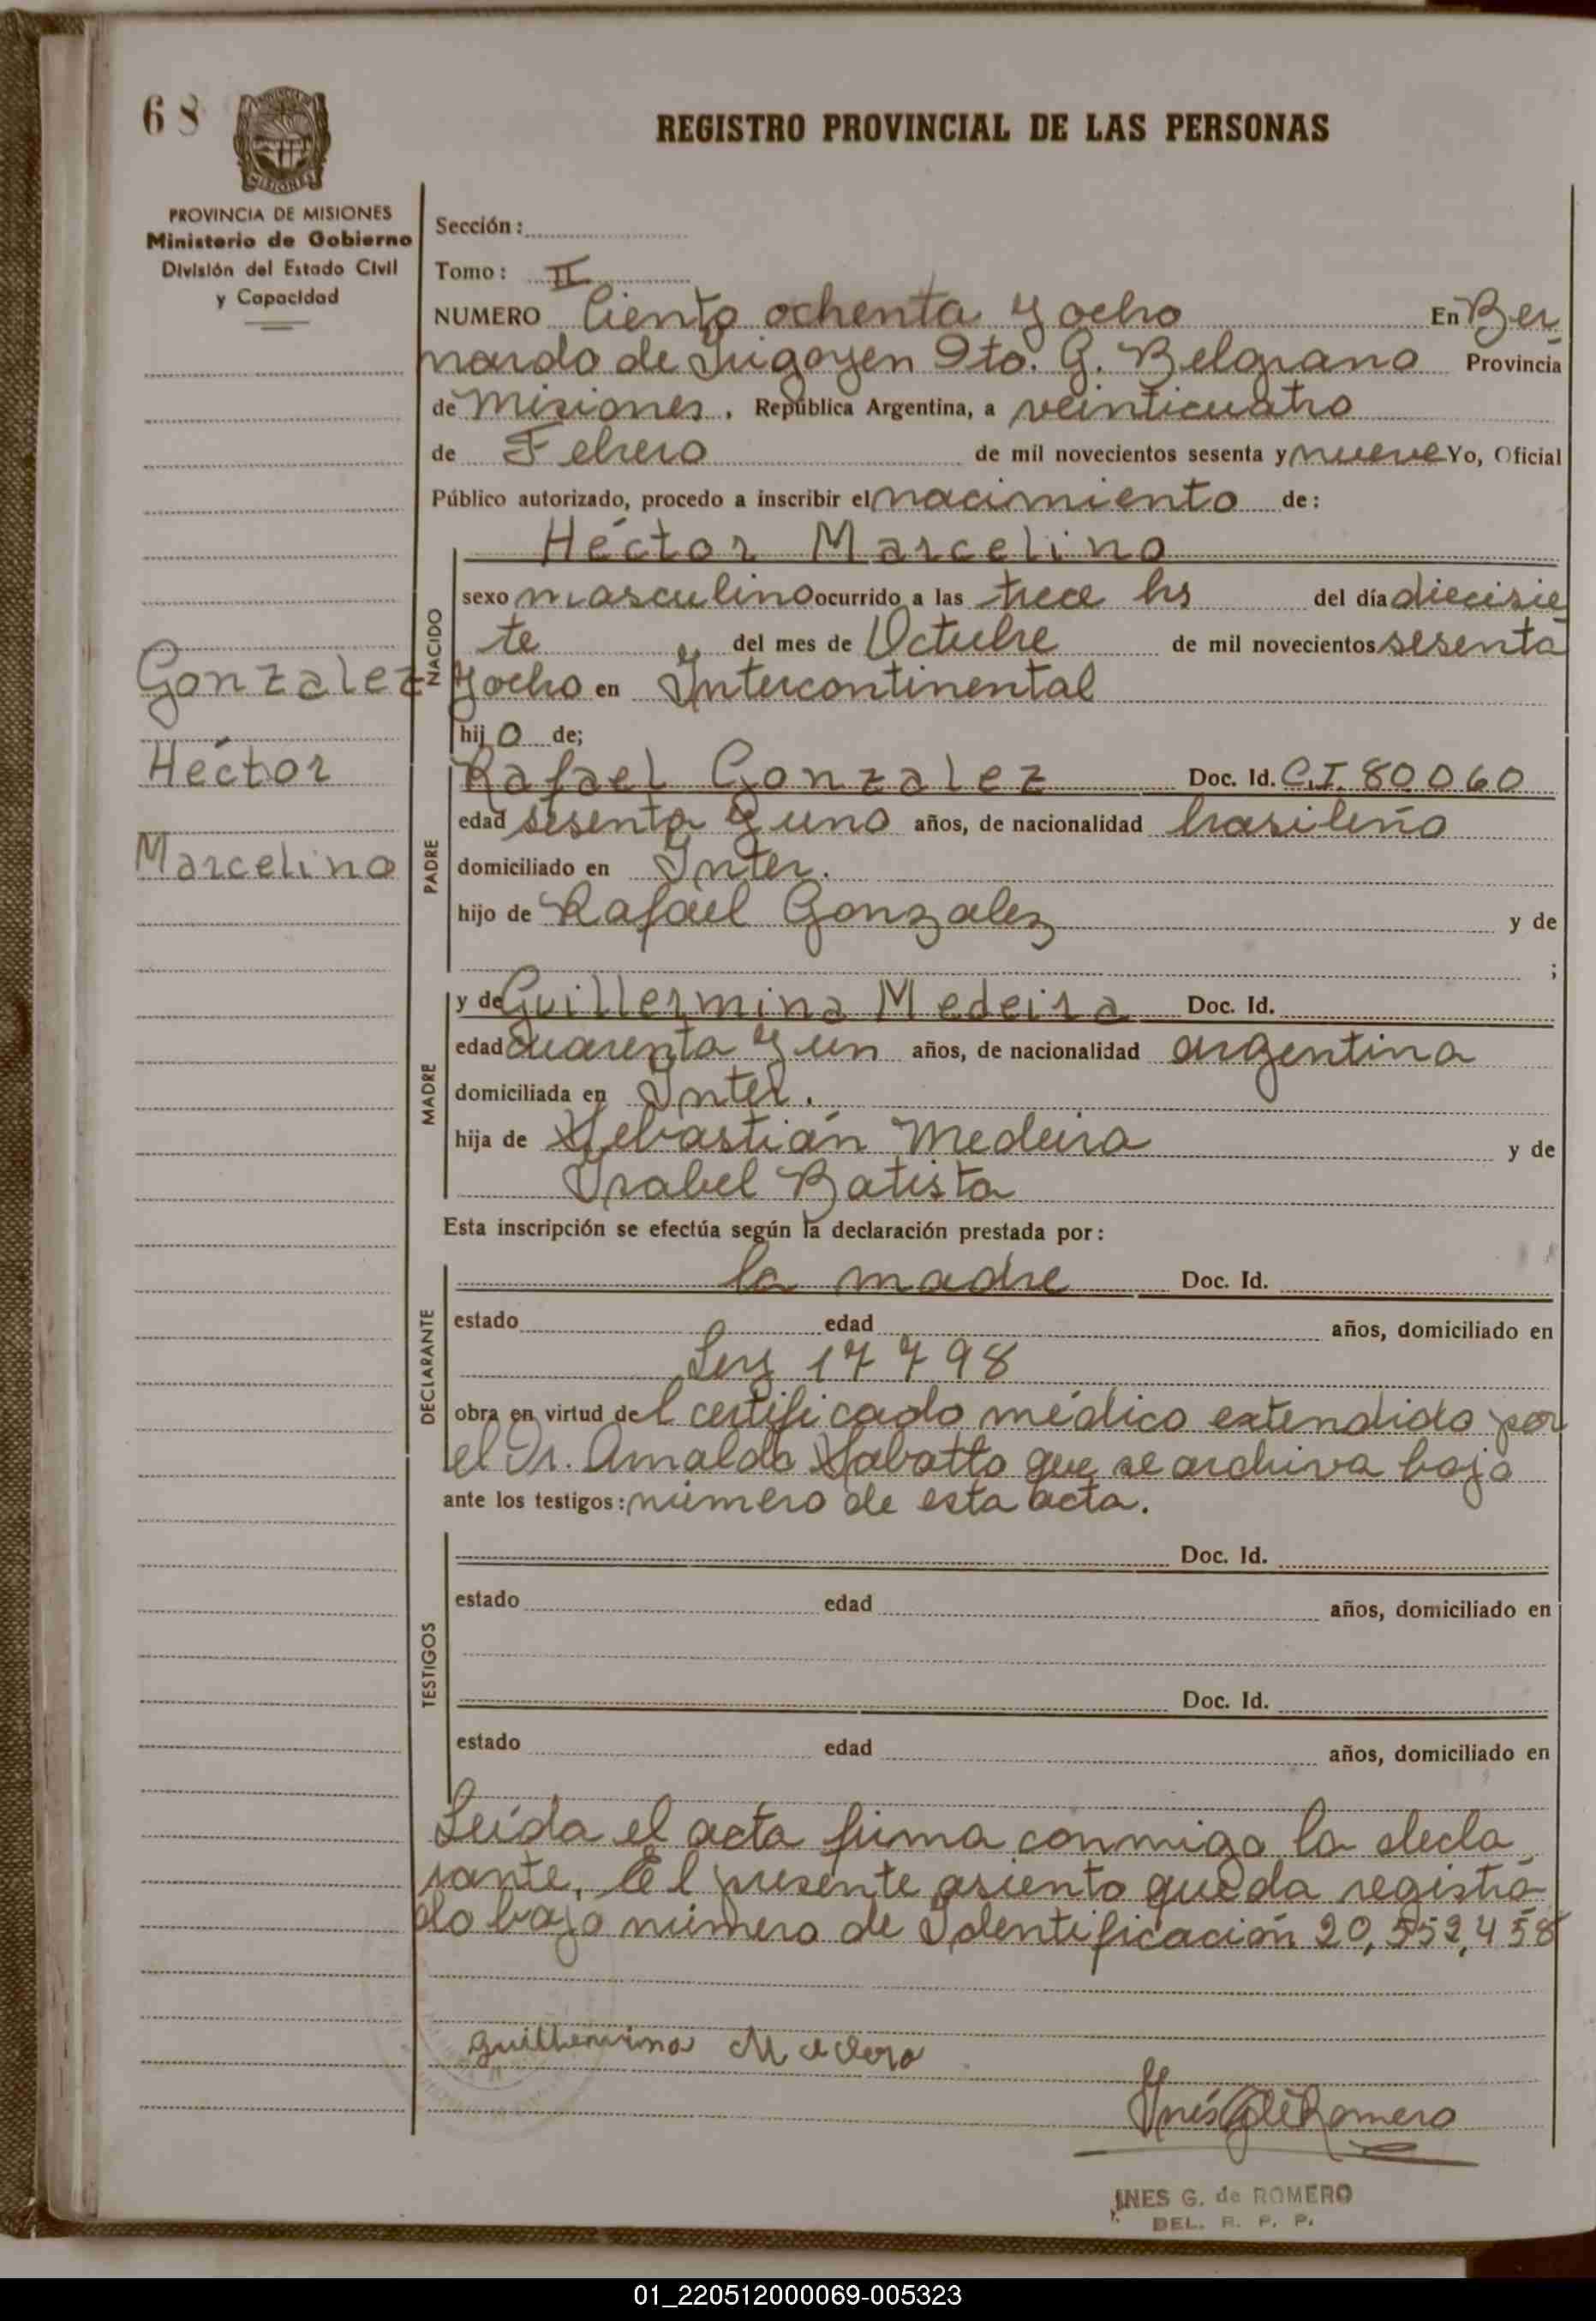 68
REGISTRO PROVINCIAL DE LAS PERSONAS
MISIONES
PROVINCIA DE MISIONES
Ministerio de Gobierno
División del Estado Civil
y Capacidad
Gonzalez
Héctor
Marcelino
Sección:
Tomo: II
NUMERO Ciento ochenta y ocho En Ber
nardo de Irigoyen Dto. G. Belgrano Provincia
de Misiones. República Argentina, a veinticuatro
de Febrero de mil novecientos sesenta y nueve Yo, Oficial
Público autorizado, procedo a inscribir el nacimiento de:
NACIDO
Héctor Marcelino
sexo masculino ocurrido a las trece hs del día diecisie
te del mes de Octubre de mil novecientos sesenta
y ocho en Intercontinental
hijo de;
PADRE
Rafael Gonzalez Doc. Id. C.I. 80.060
edad sesenta y uno años, de nacionalidad brasileño
domiciliado en Inter.
hijo de Rafael Gonzalez y de
;
MADRE
y de Guillermina Medeira Doc. Id.
edad cuarenta y un años, de nacionalidad argentina
domiciliada en Inter.
hija de Sebastián Medeira y de
Isabel Batista
Esta inscripción se efectúa según la declaración prestada por:
DECLARANTE
la madre Doc. Id.
estado edad años, domiciliado en
Ley 17798
obra en virtud del certificado médico extendido por
el Dr. Arnaldo Sabatto que se archiva bajo
ante los testigos: número de esta acta.
TESTIGOS
Doc. Id.
estado edad años, domiciliado en
Doc. Id.
estado edad años, domiciliado en
Leída el acta firma conmigo la decla
rante. El presente asiento queda registra
do bajo número de Identificación 20,552,458
Guillermina
Inés G de Romero
INES G. de ROMERO
DEL. R. P. P.
01_220512000069-005323